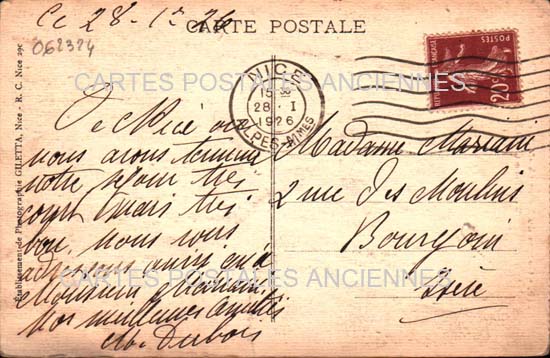 Ce 28-1-26
062324
CARTE POSTALE
CARTES POSTALES ANCIENNES
NICE
15
28 - I
1926
ALPES-MMES
POSTES
20c
De Nice où
nous avons terminé
notre séjour très
court mais très
bon, nous vous
adressons ainsi qu'à
Monsieur Mariani,
Nos meilleures amitiés
Dubois
Madame Mariani
2 rue des Moulins
Bourgoin
Isère
CARTES POSTALES ANCIENNES
Etablissement de Photographie GILETTA, Nice. - R. C. Nice 290